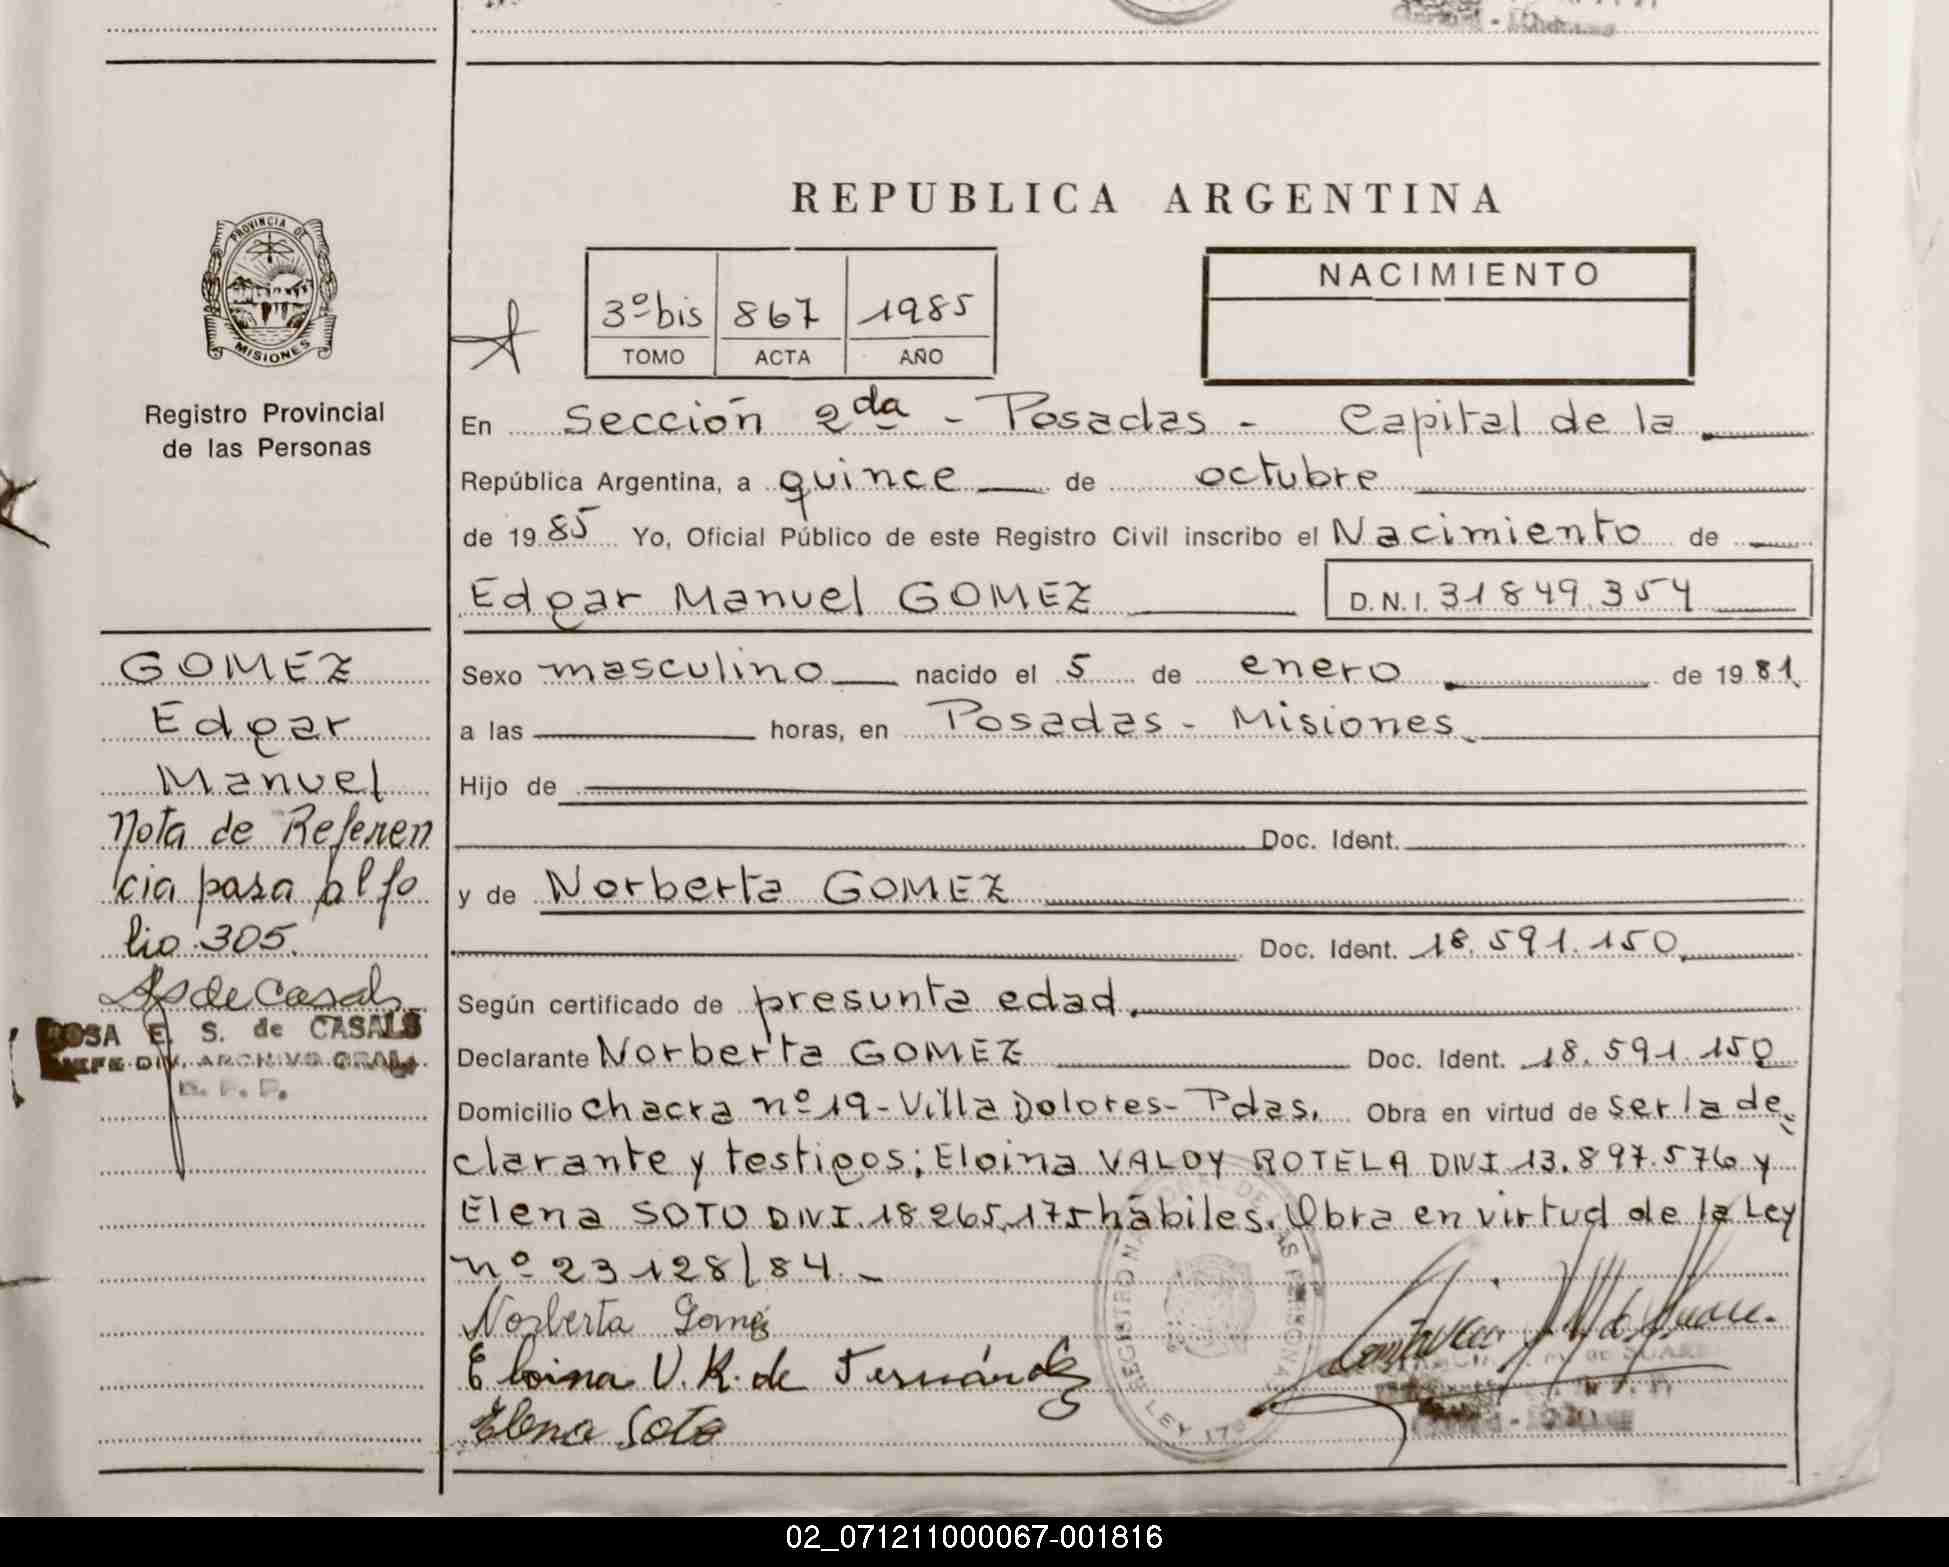 REPUBLICA ARGENTINA
PROVINCIA DE
MISIONES
Registro Provincial
de las Personas
3º bis 867 1985
TOMO ACTA AÑO
NACIMIENTO
En Sección 2da - Posadas - Capital de la
República Argentina, a quince de octubre
de 1985 Yo, Oficial Público de este Registro Civil inscribo el Nacimiento de
Edgar Manuel GOMEZ D.N.I. 31849.354
GOMEZ
Edgar
Manuel
Nota de Referen
cia pasa al fo
lio 305.
ROSA E. S. de CASALS
JEFE DIV. ARCHIVO GRAL.
R. P. P.
Sexo masculino nacido el 5 de enero de 1981
a las horas, en Posadas - Misiones
Hijo de
Doc. Ident.
y de Norberta GOMEZ
Doc. Ident. 18.591.150
Según certificado de presunta edad.
Declarante Norberta GOMEZ Doc. Ident. 18.591.150
Domicilio Chacra nº 19 - Villa Dolores - Pdas. Obra en virtud de ser la de
clarante y testigos; Eloina VALOY ROTELA DNI 13.897.576 y
Elena SOTO DNI. 18265.175 hábiles. Obra en virtud de la Ley
nº 23128/84. -
Norberta Gomez
Eloina V. R. de Fernández
Elena Soto
REGISTRO NACIONAL DE LAS PERSONAS
LEY 17
02_071211000067-001816